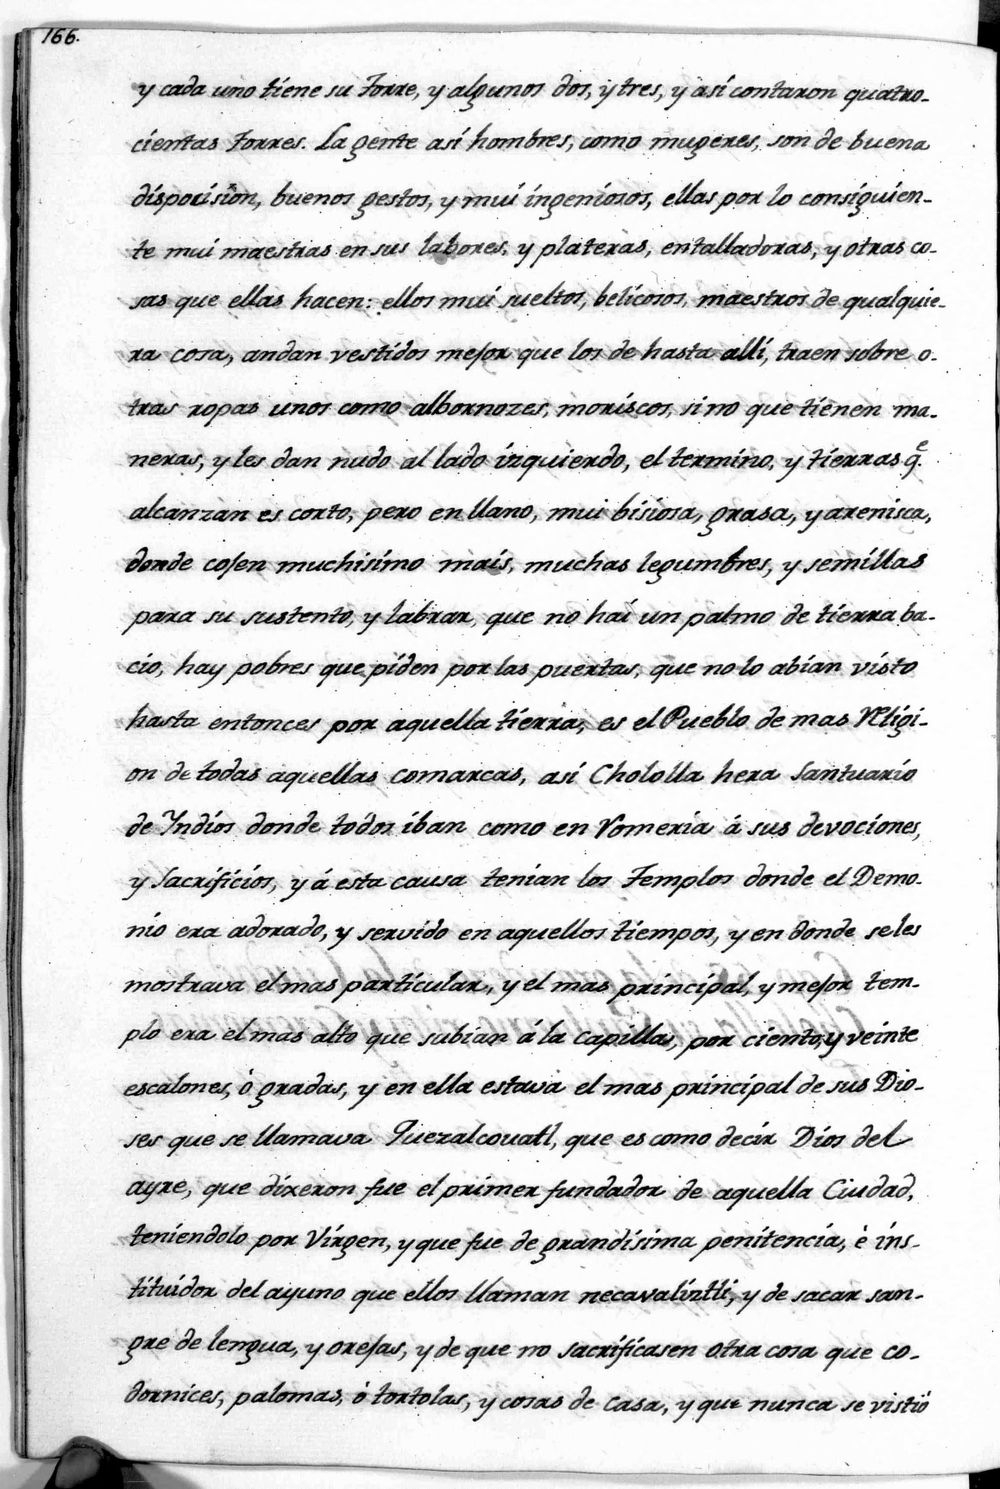 166.
y cada uno tiene su Torre, y algunos dos, y tres, y así contaron quatro-
cientas Torres. La gente así hombres, como mugeres, son de buena
disposision, buenos gestos, y mui ingeniosos, ellas por lo consiguien-
te mui maestras en sus labores, y plateras, entalladoras, y otras co-
sas que ellas hacen: ellos mui sueltos, belicosos, maestros de qualquie-
ra cosa, andan vestidos mejor que los de hasta allí, traen sobre o-
tras ropas unos como albornozes, moriscos, sino que tienen ma-
neras, y les dan nudo al lado izquierdo, el termino, y tierras q.e
alcanzan es corto, pero en llano, mui bisiosa, grasa, y arenisca,
donde cojen muchisimo mais, muchas legumbres, y semillas
para su sustento, y labrar, que no hai un palmo de tierra ba-
cio, hay pobres que piden por las puertas, que no lo abian visto
hasta entonces por aquella tierra, es el Pueblo de mas Religi-
on de todas aquellas comarcas, así Cholola hera Santuario
de Yndios donde todos iban como en Romeria á sus devociones,
y Sacrificios, y á esta causa tenian los Templos donde el Demo-
nio era adorado, y servido en aquellos tiempos, y en donde se les
mostrava el mas particular, y el mas principal, y mejor tem-
plo era el mas alto que subian á la capilla, por ciento, y veinte
escalones, ó gradas, y en ella estava el mas principal de sus Dio-
ses que se llamava Quezalcouatl, que es como decir Dios del
ayre, que dixeron fue el primer fundador de aquella Ciudad,
teniendolo por Virgen, y que fue de grandisima penitencia, è ins-
tituidor del ayuno que ellos llaman necavaliztli, y de sacar san-
gre de lengua, y orejas, y de que no sacrificasen otra cosa que co-
dornices, palomas, ó tortolas, y cosas de casa, y que nunca se vistió